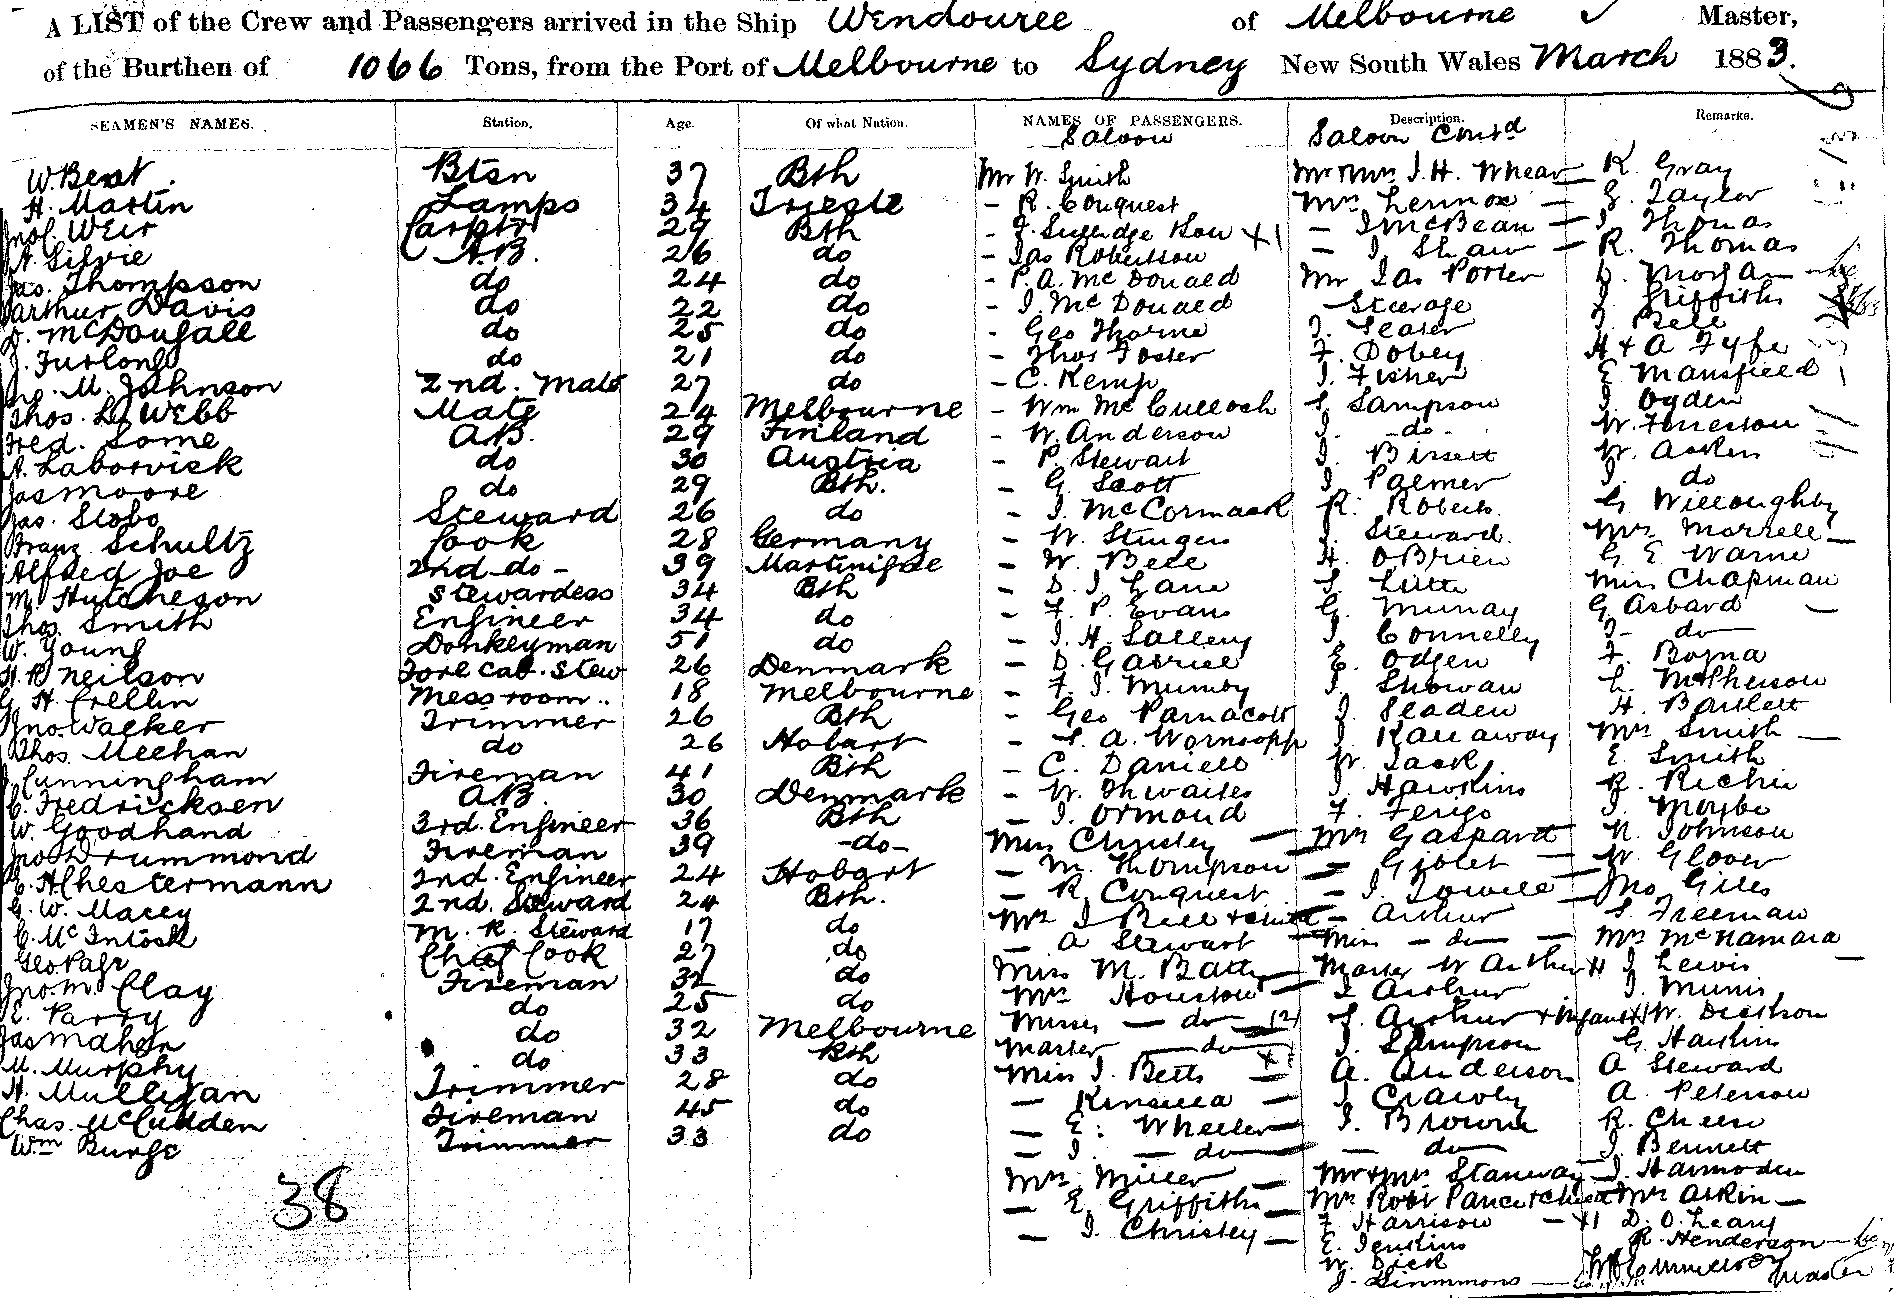 A LIST of the Crew and Passengers arrived in the Ship Wendouree of Melbourne Master,
of the Burthen of 1066 Tons, from the Port of Melbourne to Sydney New South Wales March 1883.
SEAMEN'S NAMES. Station. Age. Of what Nation. NAMES OF PASSENGERS. Description. Remarks.
Saloon Saloon Contd
W. Bent Btsn 37 Bth Mr W. Smith Mr Mrs J. H. Whear K. Gray
H. Martin Lamps 34 Trieste - R. Conquest Mrs Lennox - Taylor
Weir Carptr 29 Bth - - J McBean - J Thomas
A. Silvie A.B. 26 do - Jas Robertson - J Shaw - R. Thomas
Jas. Thompson do 24 do - P. A. McDonald Mr Jas Porter D. Morgan
Arthur Davis do 22 do - J. McDonald Steerage J. Griffiths
D. McDougall do 25 do - Geo Thorne J. J. Bell
J. Furlong do 21 do - Thos Foster F. Dobey H & A Fyfe
Jno. M. Johnson 2nd. Mate 27 do - C. Kemp J. Fisher E Mansfield
Thos. L. Webb Mate 24 Melbourne - Wm McCulloch S Sampson J Ogden
Fred. Some A.B. 29 Finland - W. Anderson J. - do - W.
A. Laborvick do 30 Austria - P. Stewart J. W. Asken
Jas Moore do 29 Bth. - G. Scott J Palmer J. do
Jas. Stobo Steward 26 do - J. McCormack R. Roberts. G Willoughby
Franz Schultz Cook 28 Germany - W. Stinger J Steward. Mrs Morrell -
Alfred Joe 2nd - do - 39 - W. Bell H. O'Brien G E Warne
M. Hutcheson Stewardess 34 Bth - D. J Lane S Little Miss Chapman
Thos. Smith Engineer 34 do - F. P. Evans G. Murray G Asbard -
W. Young Donkeyman 51 do - J. H. J Connelly J- do
H. P. Neilson Fore cab. Stew 26 Denmark - D. Gabriel E. Odgen F.
G. H. Crellin Mess room .. 18 Melbourne - F. J. Mumby J. Showan L McPherson
Jno. Walker Trimmer 26 Bth - Geo Parnacott J. Seaden H. Bartlett
Thos. Meehan do 26 Hobart - A. J Mrs Smith -
J Cunningham Fireman 41 Bth - C. Daniels W. Jack E. Smith
C. Fredricksen A.B. 30 Denmark - W. Thwaites J Hawkins R. Richie
W. Goodhand 3rd. Engineer 36 Bth - J. Ormond F. J
Jno Drummond Fireman 39 - do - Miss Christey - Mrs Gaspard N. Johnson
C. H Chestermann 2nd. Engineer 24 Hobart - M. Thompson - - W. Glover
G. W. Macey 2nd. Steward 24 Bth. - R Conquest - J. - Jno Giles
C. McIntosh M. R. Steward 17 do Mrs J Bell + child - Arthur S. Freeman
Geo Page Chf Cook 27 do - A Stewart - Miss - do - Mrs McNamara
Jno. M. Clay Fireman 32 do Miss M. Batty - Master W Arthur J Lewis -
E. Parry do 25 do Mrs Houston - Arthur J.
Jas Mahon do 32 Melbourne Misses - do - (2) S. Arthur + Infant W.
M. Murphy do 33 Bth Master - do J. Sampson G. Hawkins
H. Mulligan Trimmer 28 do Miss J. Betts - A. Anderson A Steward
Chas. McCudden Fireman 45 do - Kinsella - J Crawley A. Peterson
Wm Burge Trimmer 33 do - E. Wheeler - J. Browne R.
- J. - do - - do - J Bennett
38 Mrs Miller - Mr & Mrs Stanway - J.
- E Griffiths - Mrs Robt + Child Mrs Askin -
- J. Christey - F Harrison - +1 D. O. Leary
E. Jenkins R. Henderson
W. Dick
J. Simmmons Master